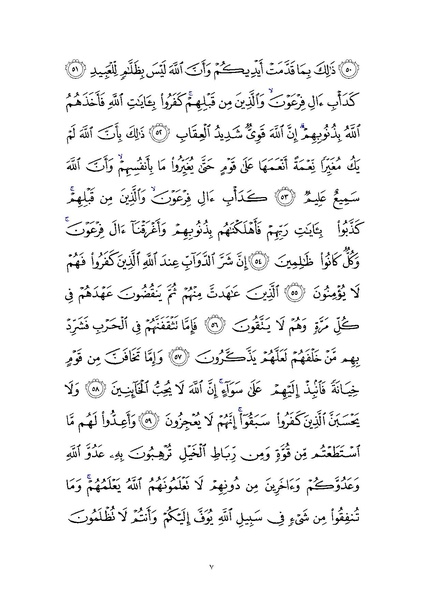 ﴿٥٠﴾ ذَٰلِكَ بِمَا قَدَّمَتْ أَيْدِيكُمْ وَأَنَّ ٱللَّهَ لَيْسَ بِظَلَّٰمٍ لِّلْعَبِيدِ ﴿٥١﴾
كَدَأْبِ ءَالِ فِرْعَوْنَ ۙ وَٱلَّذِينَ مِن قَبْلِهِمْ ۚ كَفَرُوا۟ بِـَٔايَٰتِ ٱللَّهِ فَأَخَذَهُمُ
ٱللَّهُ بِذُنُوبِهِمْ ۗ إِنَّ ٱللَّهَ قَوِىٌّ شَدِيدُ ٱلْعِقَابِ ﴿٥٢﴾ ذَٰلِكَ بِأَنَّ ٱللَّهَ لَمْ
يَكُ مُغَيِّرًا نِّعْمَةً أَنْعَمَهَا عَلَىٰ قَوْمٍ حَتَّىٰ يُغَيِّرُوا۟ مَا بِأَنفُسِهِمْ ۙ وَأَنَّ ٱللَّهَ
سَمِيعٌ عَلِيمٌ ﴿٥٣﴾ كَدَأْبِ ءَالِ فِرْعَوْنَ ۙ وَٱلَّذِينَ مِن قَبْلِهِمْ ۚ
كَذَّبُوا۟ بِـَٔايَٰتِ رَبِّهِمْ فَأَهْلَكْنَٰهُم بِذُنُوبِهِمْ وَأَغْرَقْنَآ ءَالَ فِرْعَوْنَ ۚ
وَكُلٌّ كَانُوا۟ ظَٰلِمِينَ ﴿٥٤﴾ إِنَّ شَرَّ ٱلدَّوَآبِّ عِندَ ٱللَّهِ ٱلَّذِينَ كَفَرُوا۟ فَهُمْ
لَا يُؤْمِنُونَ ﴿٥٥﴾ ٱلَّذِينَ عَٰهَدتَّ مِنْهُمْ ثُمَّ يَنقُضُونَ عَهْدَهُمْ فِى
كُلِّ مَرَّةٍ وَهُمْ لَا يَتَّقُونَ ﴿٥٦﴾ فَإِمَّا تَثْقَفَنَّهُمْ فِى ٱلْحَرْبِ فَشَرِّدْ
بِهِم مَّنْ خَلْفَهُمْ لَعَلَّهُمْ يَذَّكَّرُونَ ﴿٥٧﴾ وَإِمَّا تَخَافَنَّ مِن قَوْمٍ
خِيَانَةً فَٱنۢبِذْ إِلَيْهِمْ عَلَىٰ سَوَآءٍ ۚ إِنَّ ٱللَّهَ لَا يُحِبُّ ٱلْخَآئِنِينَ ﴿٥٨﴾ وَلَا
يَحْسَبَنَّ ٱلَّذِينَ كَفَرُوا۟ سَبَقُوٓا۟ ۚ إِنَّهُمْ لَا يُعْجِزُونَ ﴿٥٩﴾ وَأَعِدُّوا۟ لَهُم مَّا
ٱسْتَطَعْتُم مِّن قُوَّةٍ وَمِن رِّبَاطِ ٱلْخَيْلِ تُرْهِبُونَ بِهِۦ عَدُوَّ ٱللَّهِ
وَعَدُوَّكُمْ وَءَاخَرِينَ مِن دُونِهِمْ لَا تَعْلَمُونَهُمُ ٱللَّهُ يَعْلَمُهُمْ ۚ وَمَا
تُنفِقُوا۟ مِن شَىْءٍ فِى سَبِيلِ ٱللَّهِ يُوَفَّ إِلَيْكُمْ وَأَنتُمْ لَا تُظْلَمُونَ
٧